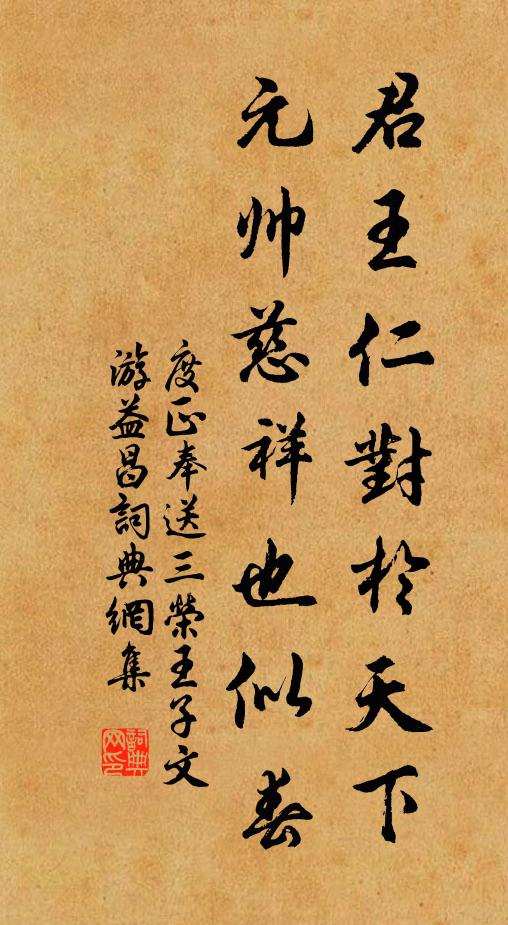 君王仁對於天下
元帅慈祥也似春
度正奉送三榮王子文
游益昌詞典網集
詞典网印